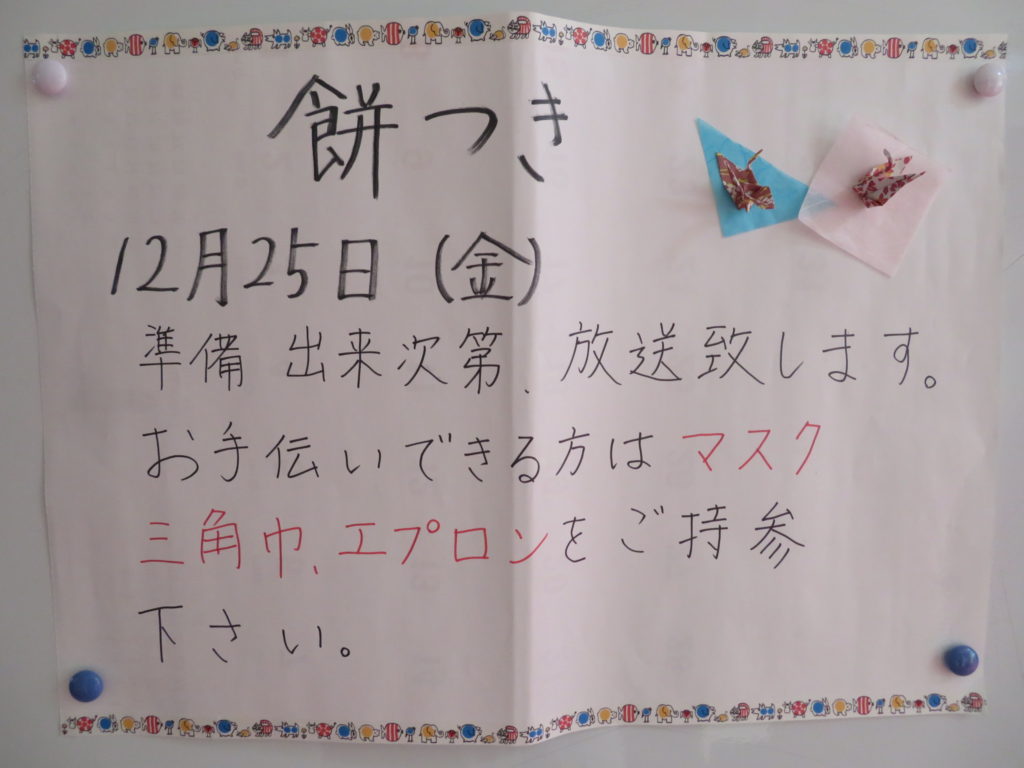 餅つき
12月25日 (金)
準備 出来次第、放送致します。
お手伝いできる方は マスク
三角巾、エプロンをご持参
下さい。